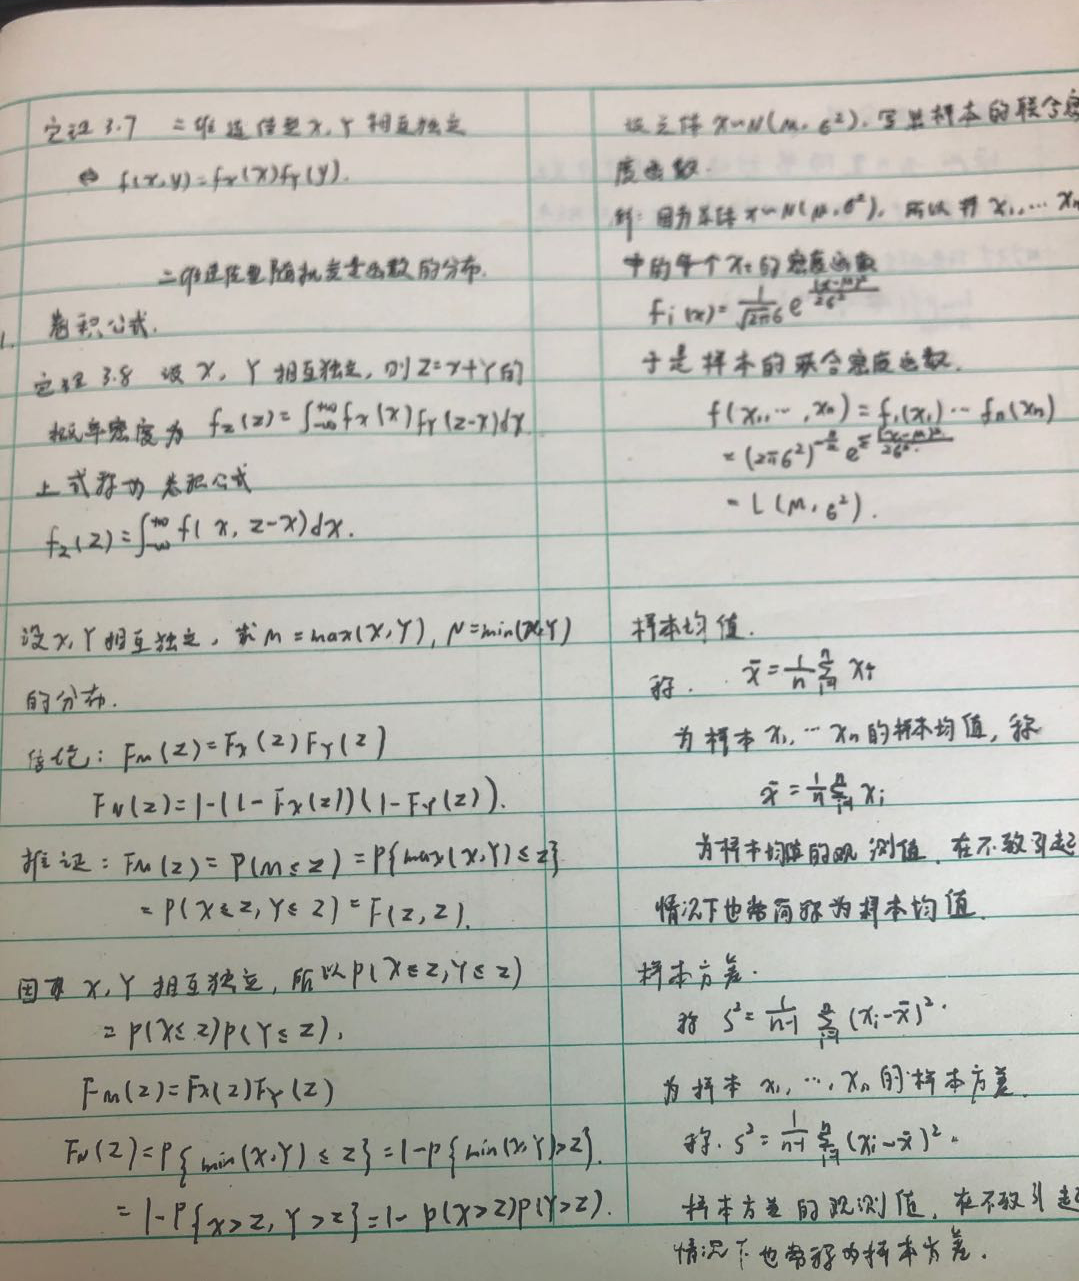 定理 3.7 二维连续型 X, Y 相互独立
⇔ f(x,y)=fX(x)fY(y).
二维连续型随机变量函数的分布.
1. 卷积公式.
定理 3.8 设 X, Y 相互独立, 则 Z=X+Y 的
概率密度为 fZ(z)=∫_{-∞}^{+∞} fX(x) fY(z-x)dx
上式称为 卷积公式
fZ(z)=∫_{-∞}^{+∞} f(x, z-x)dx.
设 X, Y 相互独立, 求 M=max(X,Y), N=min(X,Y)
的分布.
结论: FM(z)=FX(z)FY(z)
FN(z)=1-(1-FX(z))(1-FY(z)).
推证: FM(z)=P(M≤z)=P{max(X,Y)≤z}
=P(X≤z,Y≤z)=F(z,z).
因为 X, Y 相互独立, 所以 P(X≤z,Y≤z)
=P(X≤z)P(Y≤z),
FM(z)=FX(z)FY(z)
FN(z)=P{min(X,Y)≤z}=1-P{min(X,Y)>z}.
=1-P{X>z,Y>z}=1-P(X>z)P(Y>z).
设总体 X~N(μ,σ²), 写出样本的联合密
度函数.
解: 因为总体 X~N(μ,σ²), 所以样 X₁,…Xn
中的每个 Xi 的密度函数
fi(x)=1/√(2π)σ e^{(x-μ)²/2σ²}
于是样本的联合密度函数.
f(x₁,…,xn)=f₁(x₁)…fn(xn)
=(2πσ²)^{-n/2} e^{Σ(xi-μ)²/2σ²}
=L(μ,σ²).
样本均值.
称. X̄=1/n Σ_{i=1}^{n} Xi
为样本 X₁,…Xn 的样本均值, 称
x̄=1/n Σ_{i=1}^{n} xi
为样本均值的观测值, 在不致引起
情况下也常简称为样本均值.
样本方差.
称 S²=1/(n-1) Σ_{i=1}^{n} (Xi-X̄)².
为样本 X₁,…,Xn 的样本方差.
称. s²=1/(n-1) Σ_{i=1}^{n} (xi-x̄)².
样本方差的观测值, 在不致引起
情况下也常称为样本方差.